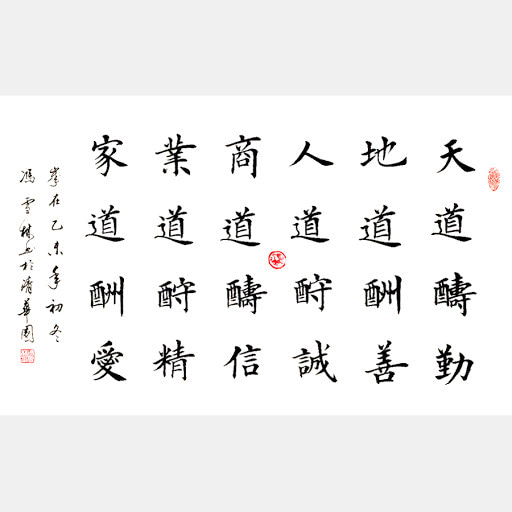 天道醻勤
地道酬善
人道酧誠
商道醻信
業道酧精
家道酬愛
歲在乙未年初冬
馮雪书於清華園